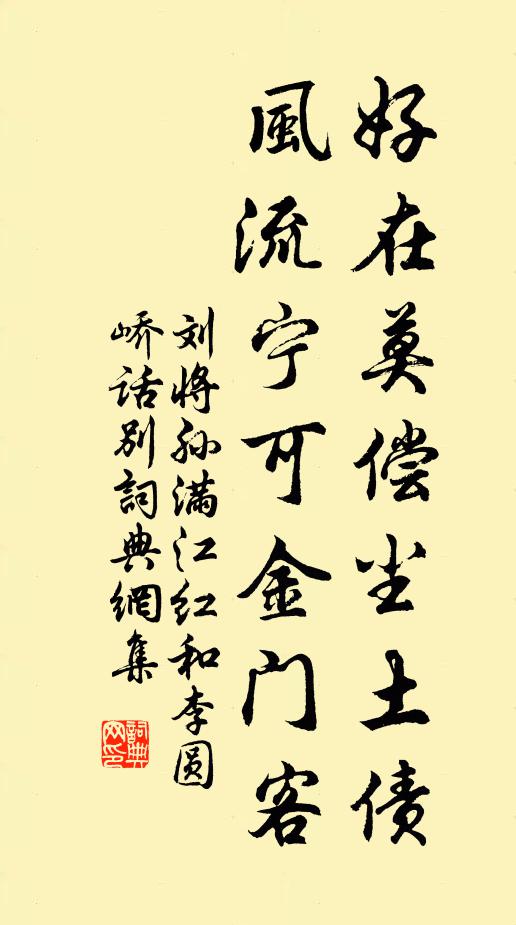 好在莫偿尘土债
風流宁可金门客
刘将孙满江红和李圆
峤话别詞典網集
詞典
网印